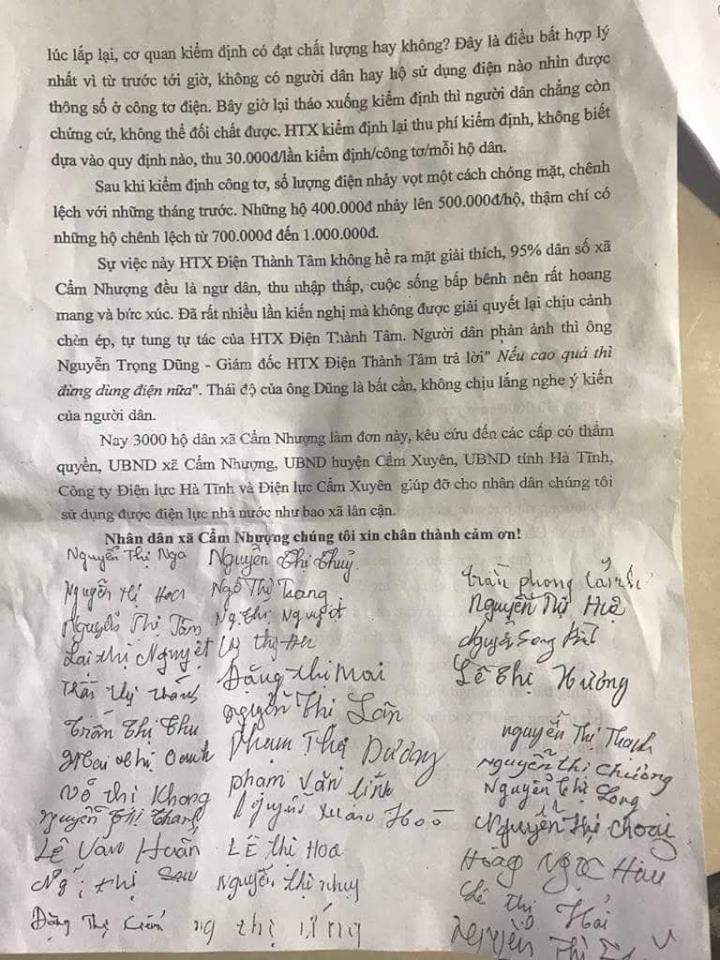 lúc lắp lại, cơ quan kiểm định có đạt chất lượng hay không? Đây là điều bất hợp lý
nhất vì từ trước tới giờ, không có người dân hay hộ sử dụng điện nào nhìn được
thông số ở công tơ điện. Bây giờ lại tháo xuống kiểm định thì người dân chẳng còn
chứng cứ, không thể đối chất được. HTX kiểm định lại thu phí kiểm định, không biết
dựa vào quy định nào, thu 30.000đ/lần kiểm định/công tơ/mỗi hộ dân.
Sau khi kiểm định công tơ, số lượng điện nhảy vọt một cách chóng mặt, chênh
lệch với những tháng trước. Những hộ 400.000đ nhảy lên 500.000đ/hộ, thậm chí có
những hộ chênh lệch từ 700.000đ đến 1.000.000đ.
Sự việc này HTX Điện Thành Tâm không hề ra mặt giải thích, 95% dân số xã
Cẩm Nhượng đều là ngư dân, thu nhập thấp, cuộc sống bấp bênh nên rất hoang
mang và bức xúc. Đã rất nhiều lần kiến nghị mà không được giải quyết lại chịu cảnh
chèn ép, tự tung tự tác của HTX Điện Thành Tâm. Người dân phản ảnh thì ông
Nguyễn Trọng Dũng - Giám đốc HTX Điện Thành Tâm trả lời" Nếu cao quá thì
đừng dùng điện nữa". Thái độ của ông Dũng là bất cần, không chịu lắng nghe ý kiến
của người dân.
Nay 3000 hộ dân xã Cẩm Nhượng làm đơn này, kêu cứu đến các cấp có thẩm
quyền, UBND xã Cẩm Nhượng, UBND huyện Cẩm Xuyên, UBND tỉnh Hà Tĩnh,
Công ty Điện lực Hà Tĩnh và Điện lực Cẩm Xuyên giúp đỡ cho nhân dân chúng tôi
sử dụng được điện lực nhà nước như bao xã lân cận.
Nhân dân xã Cẩm Nhượng chúng tôi xin chân thành cảm ơn!
Nguyễn Thị Nga Nguyễn Thị Thuỷ
Trần phong
Nguyễn Thị Hoa Ngô Thị Trang
Nguyễn Thị Huệ
Nguyễn Thị Tâm Ng Thị Nguyệt
Nguyễn Song
Lại Thị Nguyệt
Lê Thị Hường
Đặng Thị Mai
Nguyễn Thị Lân
Trần Thị Thu
Nguyễn Thị Thanh
Mai Thị Oanh Phạm Thị Dương
Nguyễn Thị Chương
Võ Thị Khang Phạm Văn Lĩnh
Nguyễn Thị Long
Nguyễn Thị Thanh Nguyễn Xuân Hoà
Nguyễn Thị Choai
Lê Văn Huấn Lê Thị Hoa
Hoàng Ngọc Hậu
Thị Sau Nguyễn Thị Nhuy
Lê Thị Hải
Đặng Thị Kiếm ng thị
Nguyễn Thị